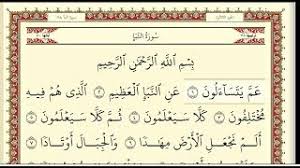 سُورَةُ النَّبَإِ
بِسْمِ اللَّهِ الرَّحْمَٰنِ الرَّحِيمِ
عَمَّ يَتَسَاءَلُونَ ١ عَنِ النَّبَإِ الْعَظِيمِ ٢ الَّذِي هُمْ فِيهِ
مُخْتَلِفُونَ ٣ كَلَّا سَيَعْلَمُونَ ٤ ثُمَّ كَلَّا سَيَعْلَمُونَ ٥
أَلَمْ نَجْعَلِ الْأَرْضَ مِهَٰدًا ٦ وَالْجِبَالَ أَوْتَادًا ٧